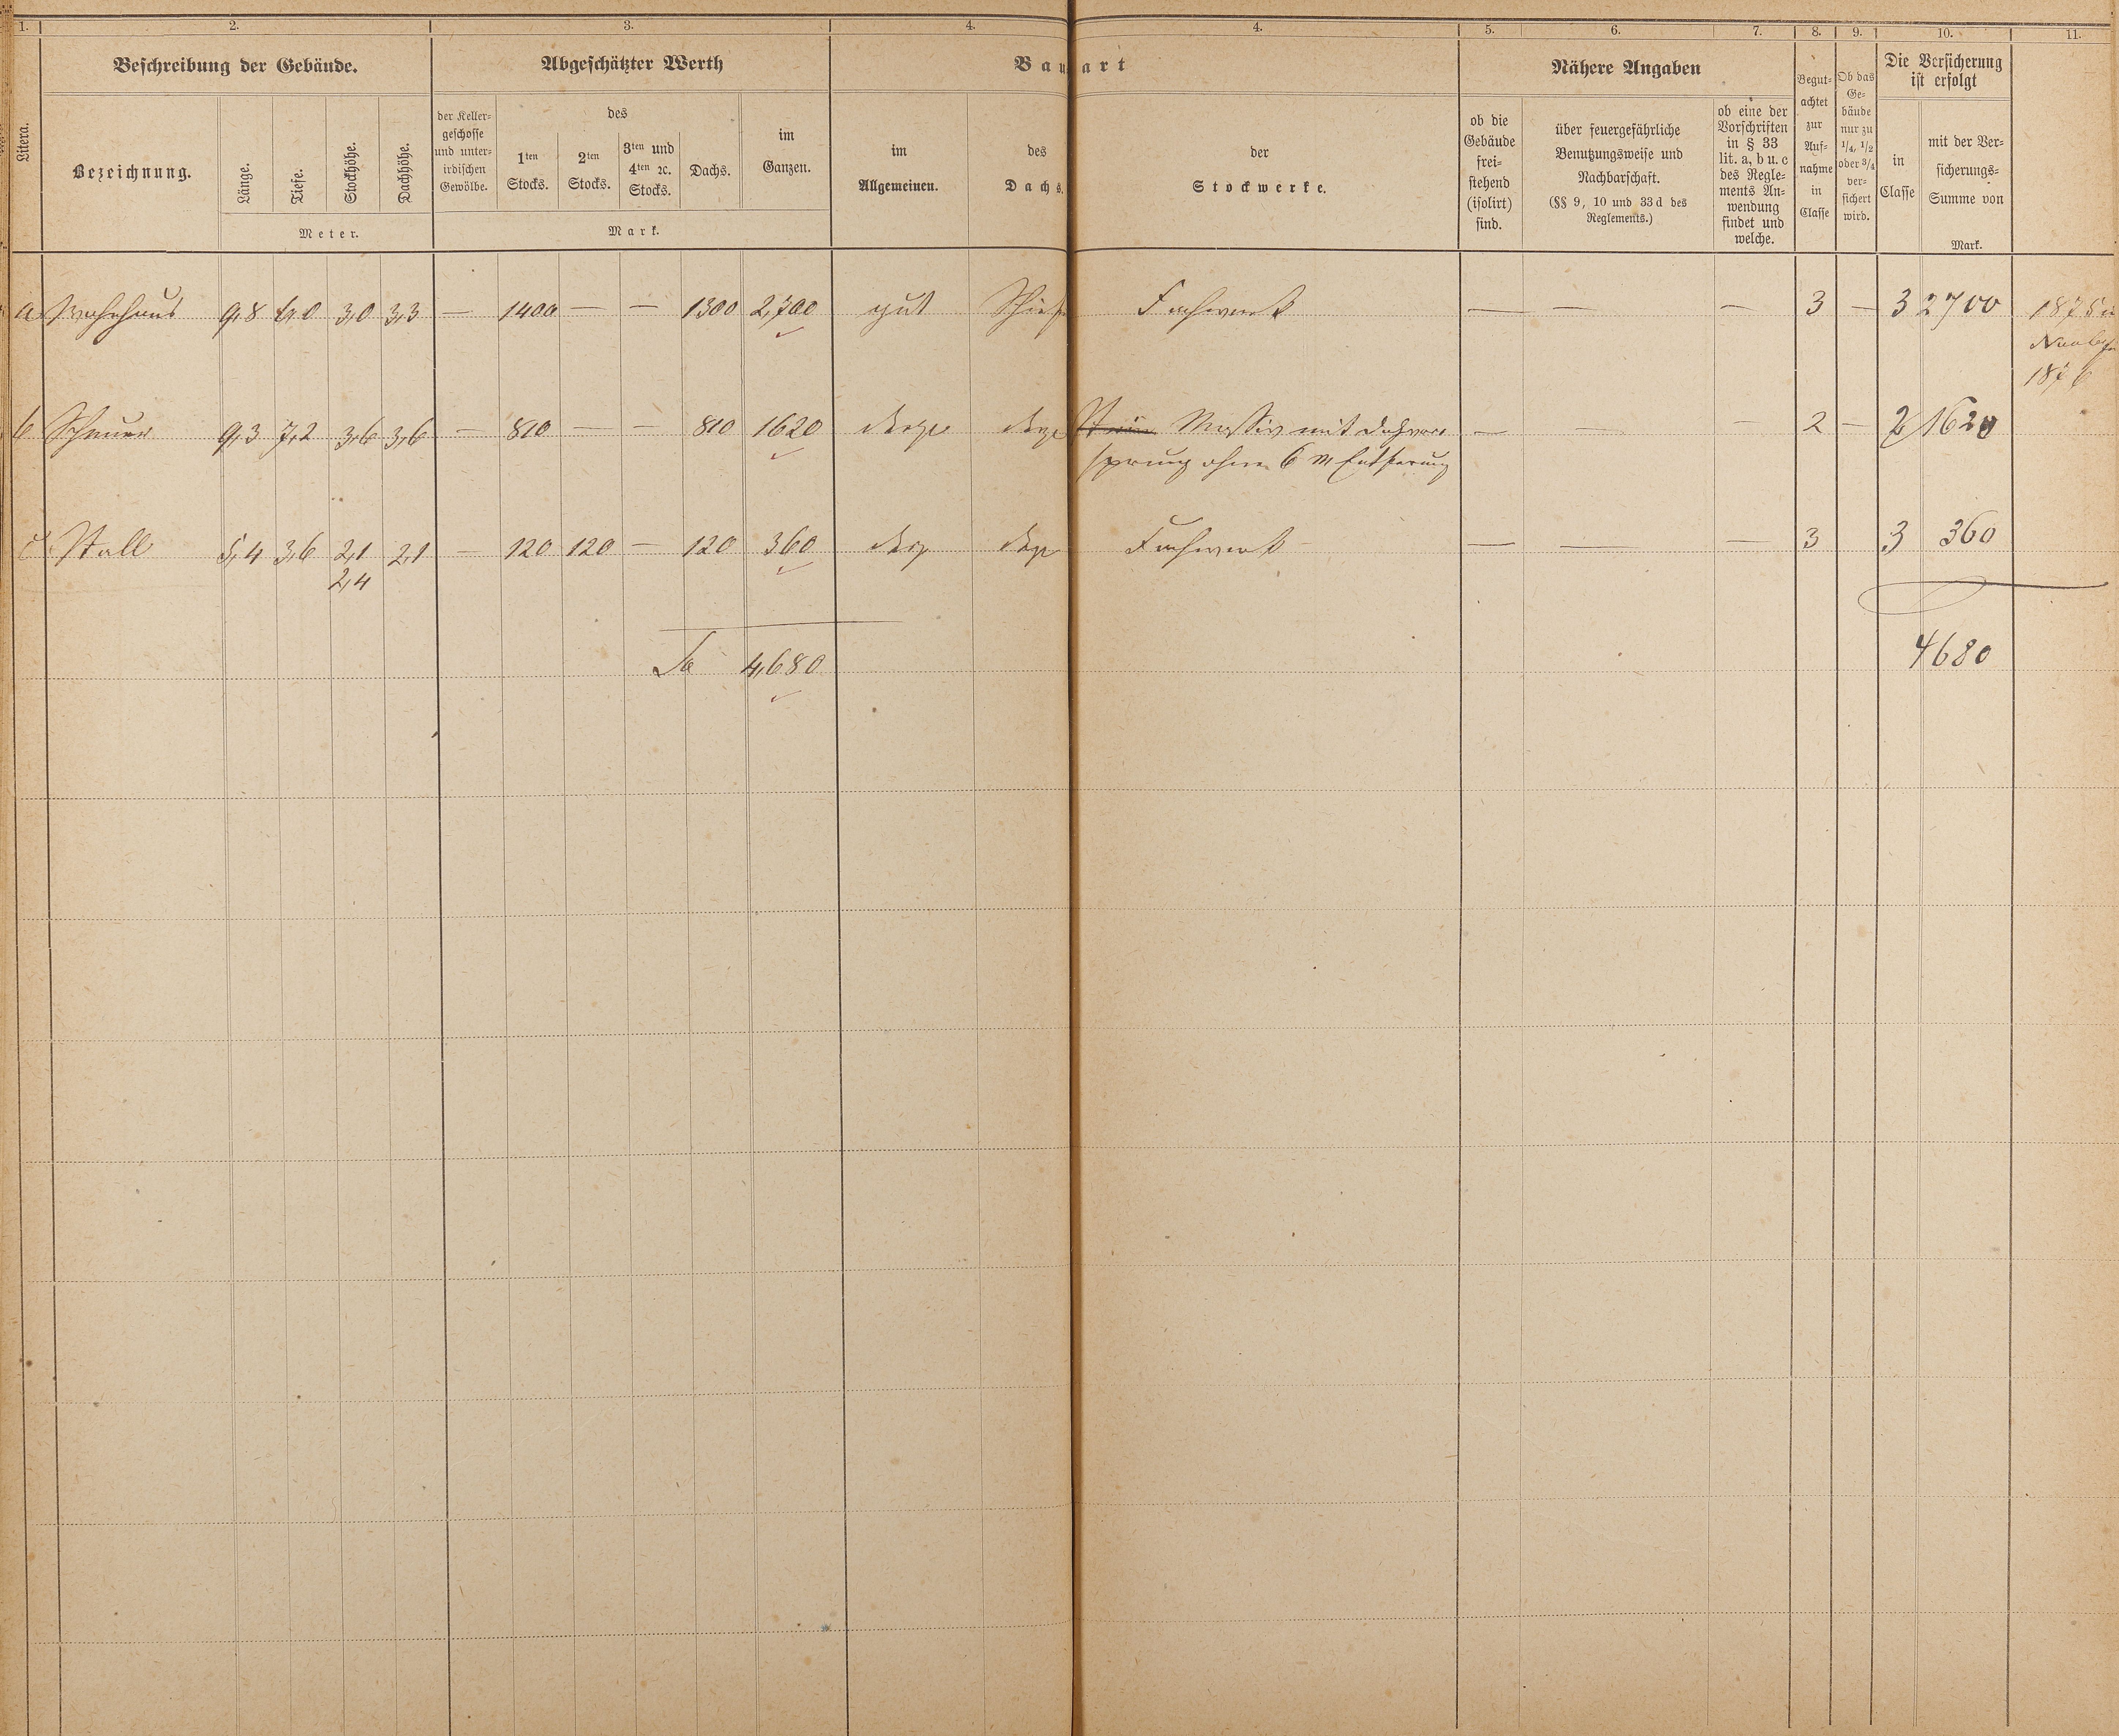 1. 2. 3. 4. 4. 5. 6. 7. 8. 9. 10. 11.
Beschreibung der Gebäude. Abgeschätzter Werth Bauart Nähere Angaben Die Versicherung
ist erfolgt
Litera.
Bezeichnung.
Länge.
Tiefe.
Stockhöhe.
Dachhöhe.
Meter.
der Keller-
geschosse
und unter-
irdischen
Gewölbe.
des
1ten
Stocks.
2ten
Stocks.
3ten und
4ten ꝛc.
Stocks.
Dachs.
im
Ganzen.
Mark.
im
Allgemeinen.
des
Dachs.
der
Stockwerke.
ob die
Gebäude
frei-
stehend
(isolirt)
sind.
über feuergefährliche
Benutzungsweise und
Nachbarschaft.
(§§ 9, 10 und 33d des
Reglements.)
ob eine der
Vorschriften
in § 33
lit. a, b u. c
des Regle-
ments An-
wendung
findet und
welche.
Begut-
achtet
zur
Auf-
nahme
in
Classe
Ob das
Ge-
bäude
nur zu
1/4, 1/2
oder 3/4
ver-
sichert
wird.
in
Classe
mit der Ver-
sicherungs-
Summe von
Mark.
a Wohnhaus 9,8 6,0 3,0 3,3 — 1400 — — 1300 2,700 gut Schief Fachwerk — — — 3 — 3 2700 1875
1876
b Scheuer 9,3 7,2 3,6 3,6 — 810 — — 810 1620 dergl dergl Massiv mit Dachvor
sprung ohne 6 m Entfernung — — — 2 — 2 1620
c Stall 5,4 3,6 2,1 2,1 — 120 120 — 120 360 dergl dergl Fachwerk — — — 3 3 360
2,4
Sa 4,680 4680